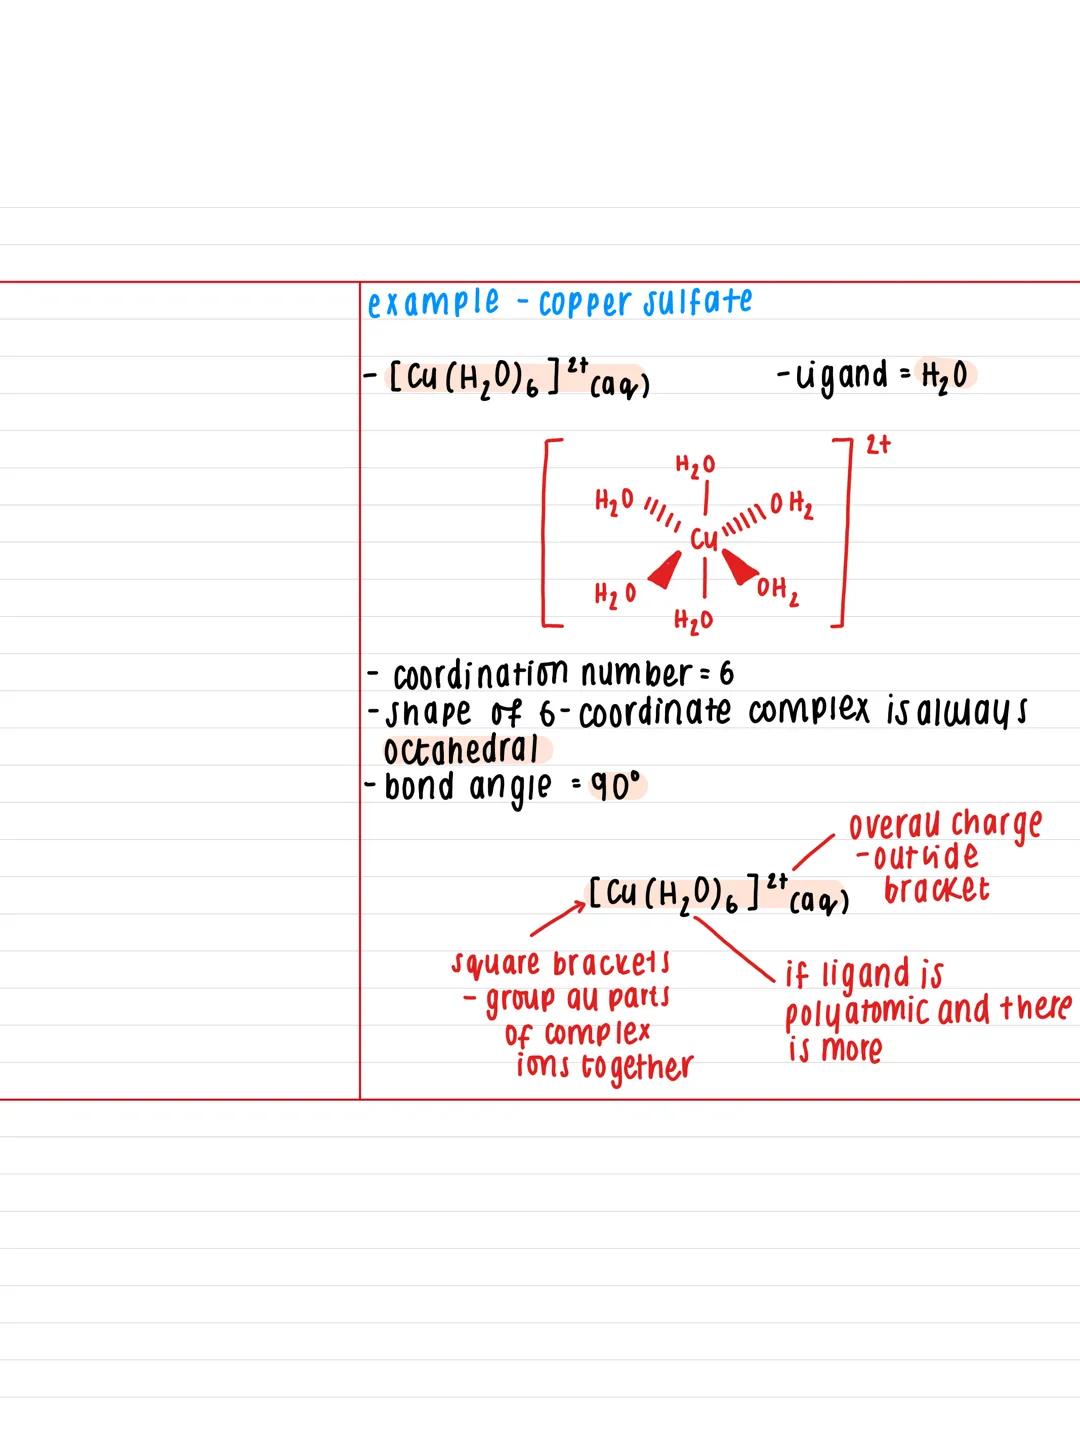 example - copper sulfate
- [Cu(H₂O)₆]²⁺(aq) - ligand = H₂O
2+
H₂O
H₂O OH₂
Cu
H₂O OH₂
H₂O
- coordination number = 6
- shape of 6-coordinate complex is always
octahedral
- bond angle = 90°
overall charge
- outside
bracket
[Cu(H₂O)₆]²⁺(aq)
square brackets
- group all parts
of complex
ions together
if ligand is
polyatomic and there
is more